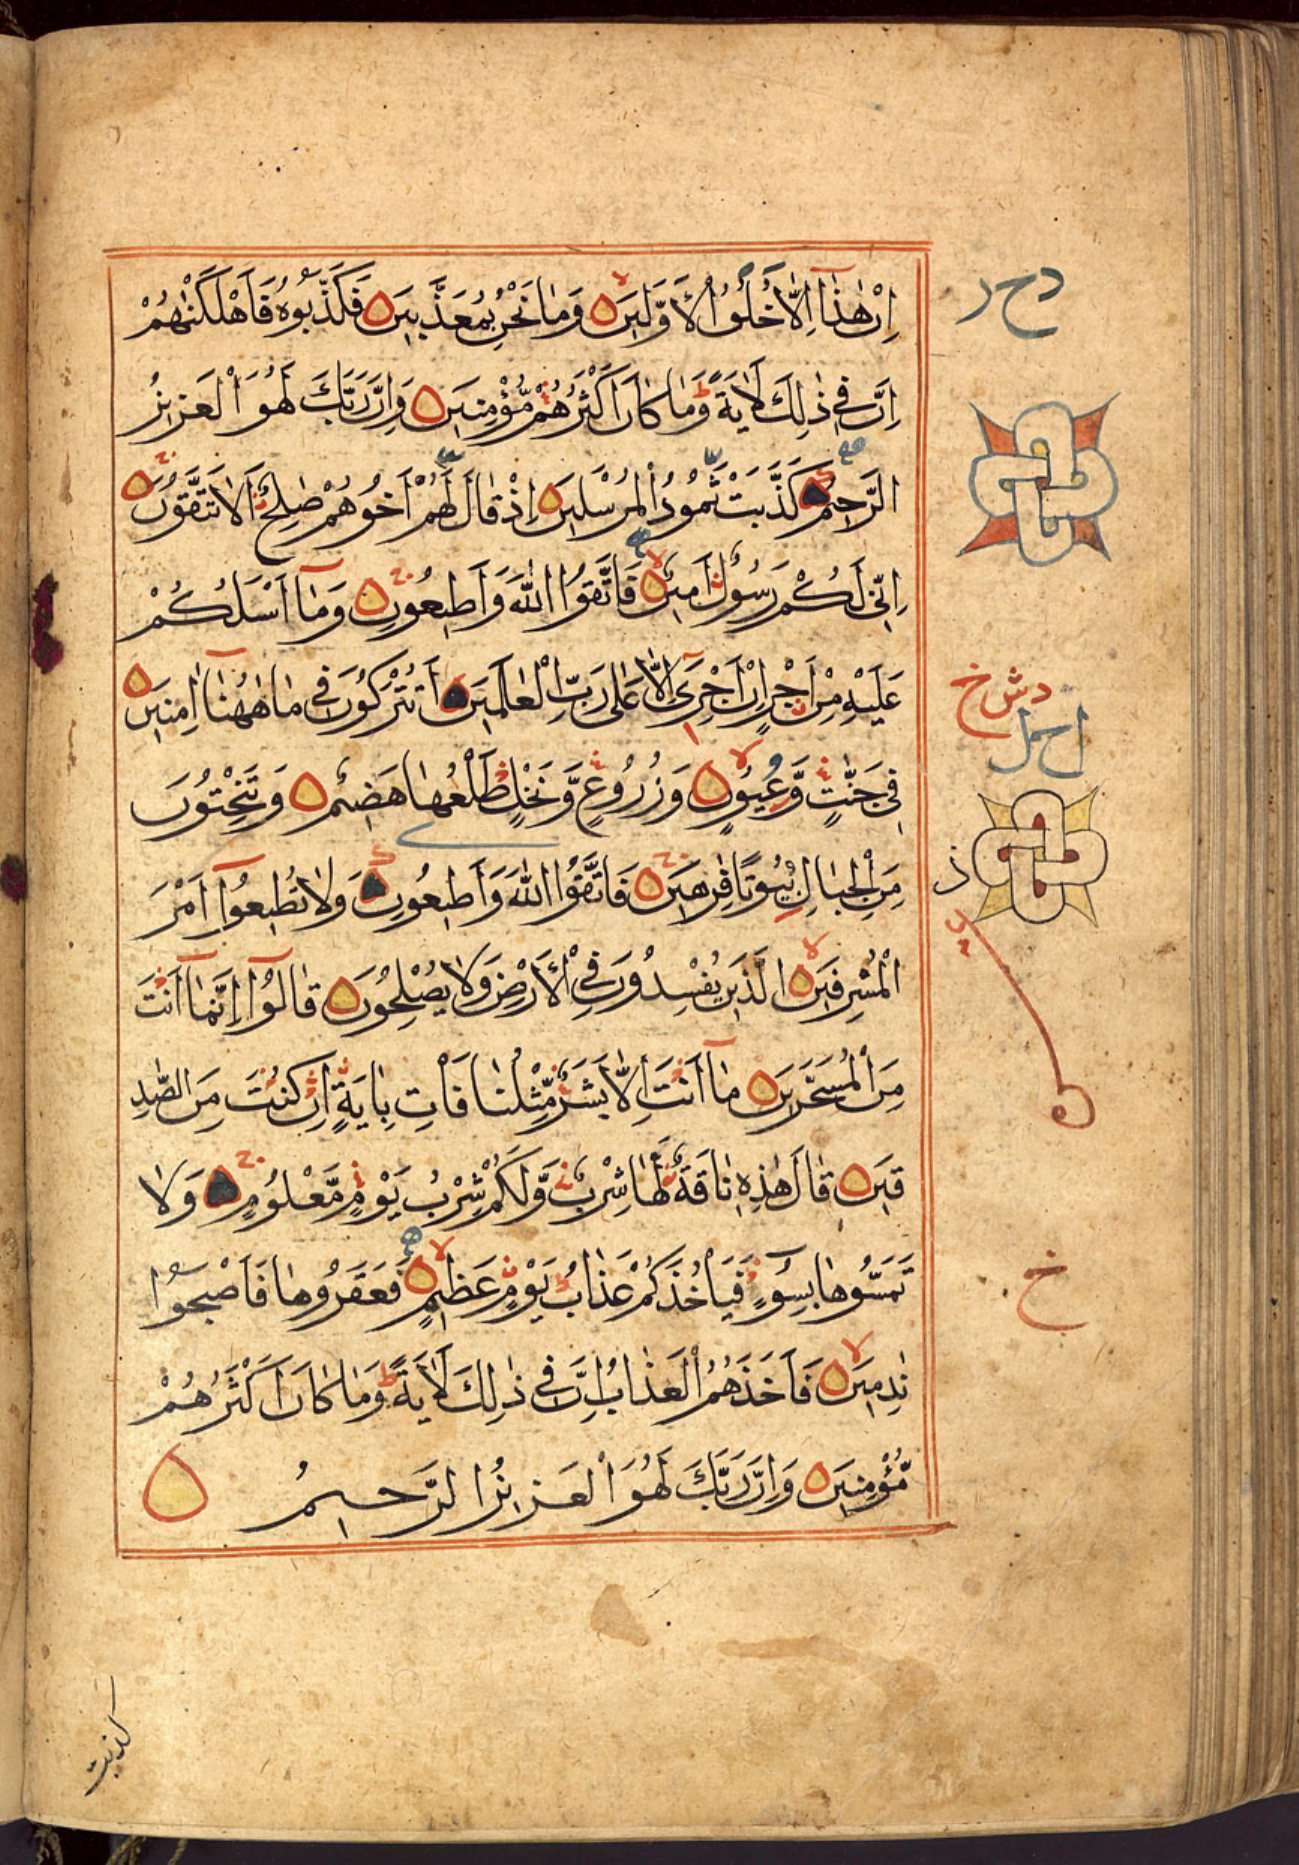 اِنْ هٰذَآ اِلَّا خُلُقُ الْاَوَّلِيْنَ وَمَا نَحْنُ بِمُعَذَّبِيْنَ فَكَذَّبُوْهُ فَاَهْلَكْنٰهُمْ
اِنَّ فِيْ ذٰلِكَ لَاٰيَةً وَمَا كَانَ اَكْثَرُهُمْ مُّؤْمِنِيْنَ وَاِنَّ رَبَّكَ لَهُوَ الْعَزِيْزُ
الرَّحِيْمُ كَذَّبَتْ ثَمُوْدُ الْمُرْسَلِيْنَ اِذْ قَالَ لَهُمْ اَخُوْهُمْ صٰلِحٌ اَلَا تَتَّقُوْنَ
اِنِّيْ لَكُمْ رَسُوْلٌ اَمِيْنٌ فَاتَّقُوا اللّٰهَ وَاَطِيْعُوْنِ وَمَآ اَسْـَٔلُكُمْ
عَلَيْهِ مِنْ اَجْرٍ اِنْ اَجْرِيَ اِلَّا عَلٰى رَبِّ الْعٰلَمِيْنَ اَتُتْرَكُوْنَ فِيْ مَا هٰهُنَآ اٰمِنِيْنَ
فِيْ جَنّٰتٍ وَّعُيُوْنٍ وَزُرُوْعٍ وَّنَخْلٍ طَلْعُهَا هَضِيْمٌ وَتَنْحِتُوْنَ
مِنَ الْجِبَالِ بُيُوْتًا فٰرِهِيْنَ فَاتَّقُوا اللّٰهَ وَاَطِيْعُوْنِ وَلَا تُطِيْعُوْٓا اَمْرَ
الْمُسْرِفِيْنَ الَّذِيْنَ يُفْسِدُوْنَ فِي الْاَرْضِ وَلَا يُصْلِحُوْنَ قَالُوْٓا اِنَّمَآ اَنْتَ
مِنَ الْمُسَحَّرِيْنَ مَآ اَنْتَ اِلَّا بَشَرٌ مِّثْلُنَا فَأْتِ بِاٰيَةٍ اِنْ كُنْتَ مِنَ الصّٰدِ
قِيْنَ قَالَ هٰذِهٖ نَاقَةٌ لَّهَا شِرْبٌ وَّلَكُمْ شِرْبُ يَوْمٍ مَّعْلُوْمٍ وَلَا
تَمَسُّوْهَا بِسُوْٓءٍ فَيَأْخُذَكُمْ عَذَابُ يَوْمٍ عَظِيْمٍ فَعَقَرُوْهَا فَاَصْبَحُوْا
نٰدِمِيْنَ فَاَخَذَهُمُ الْعَذَابُ اِنَّ فِيْ ذٰلِكَ لَاٰيَةً وَمَا كَانَ اَكْثَرُهُمْ
مُّؤْمِنِيْنَ وَاِنَّ رَبَّكَ لَهُوَ الْعَزِيْزُ الرَّحِيْمُ
كذبت